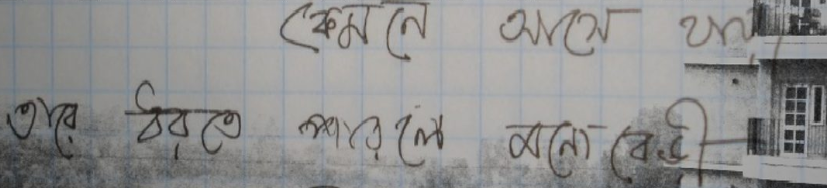 কেমনে আসে যায়
তারে ধরতে পারলে মনো বেড়ী